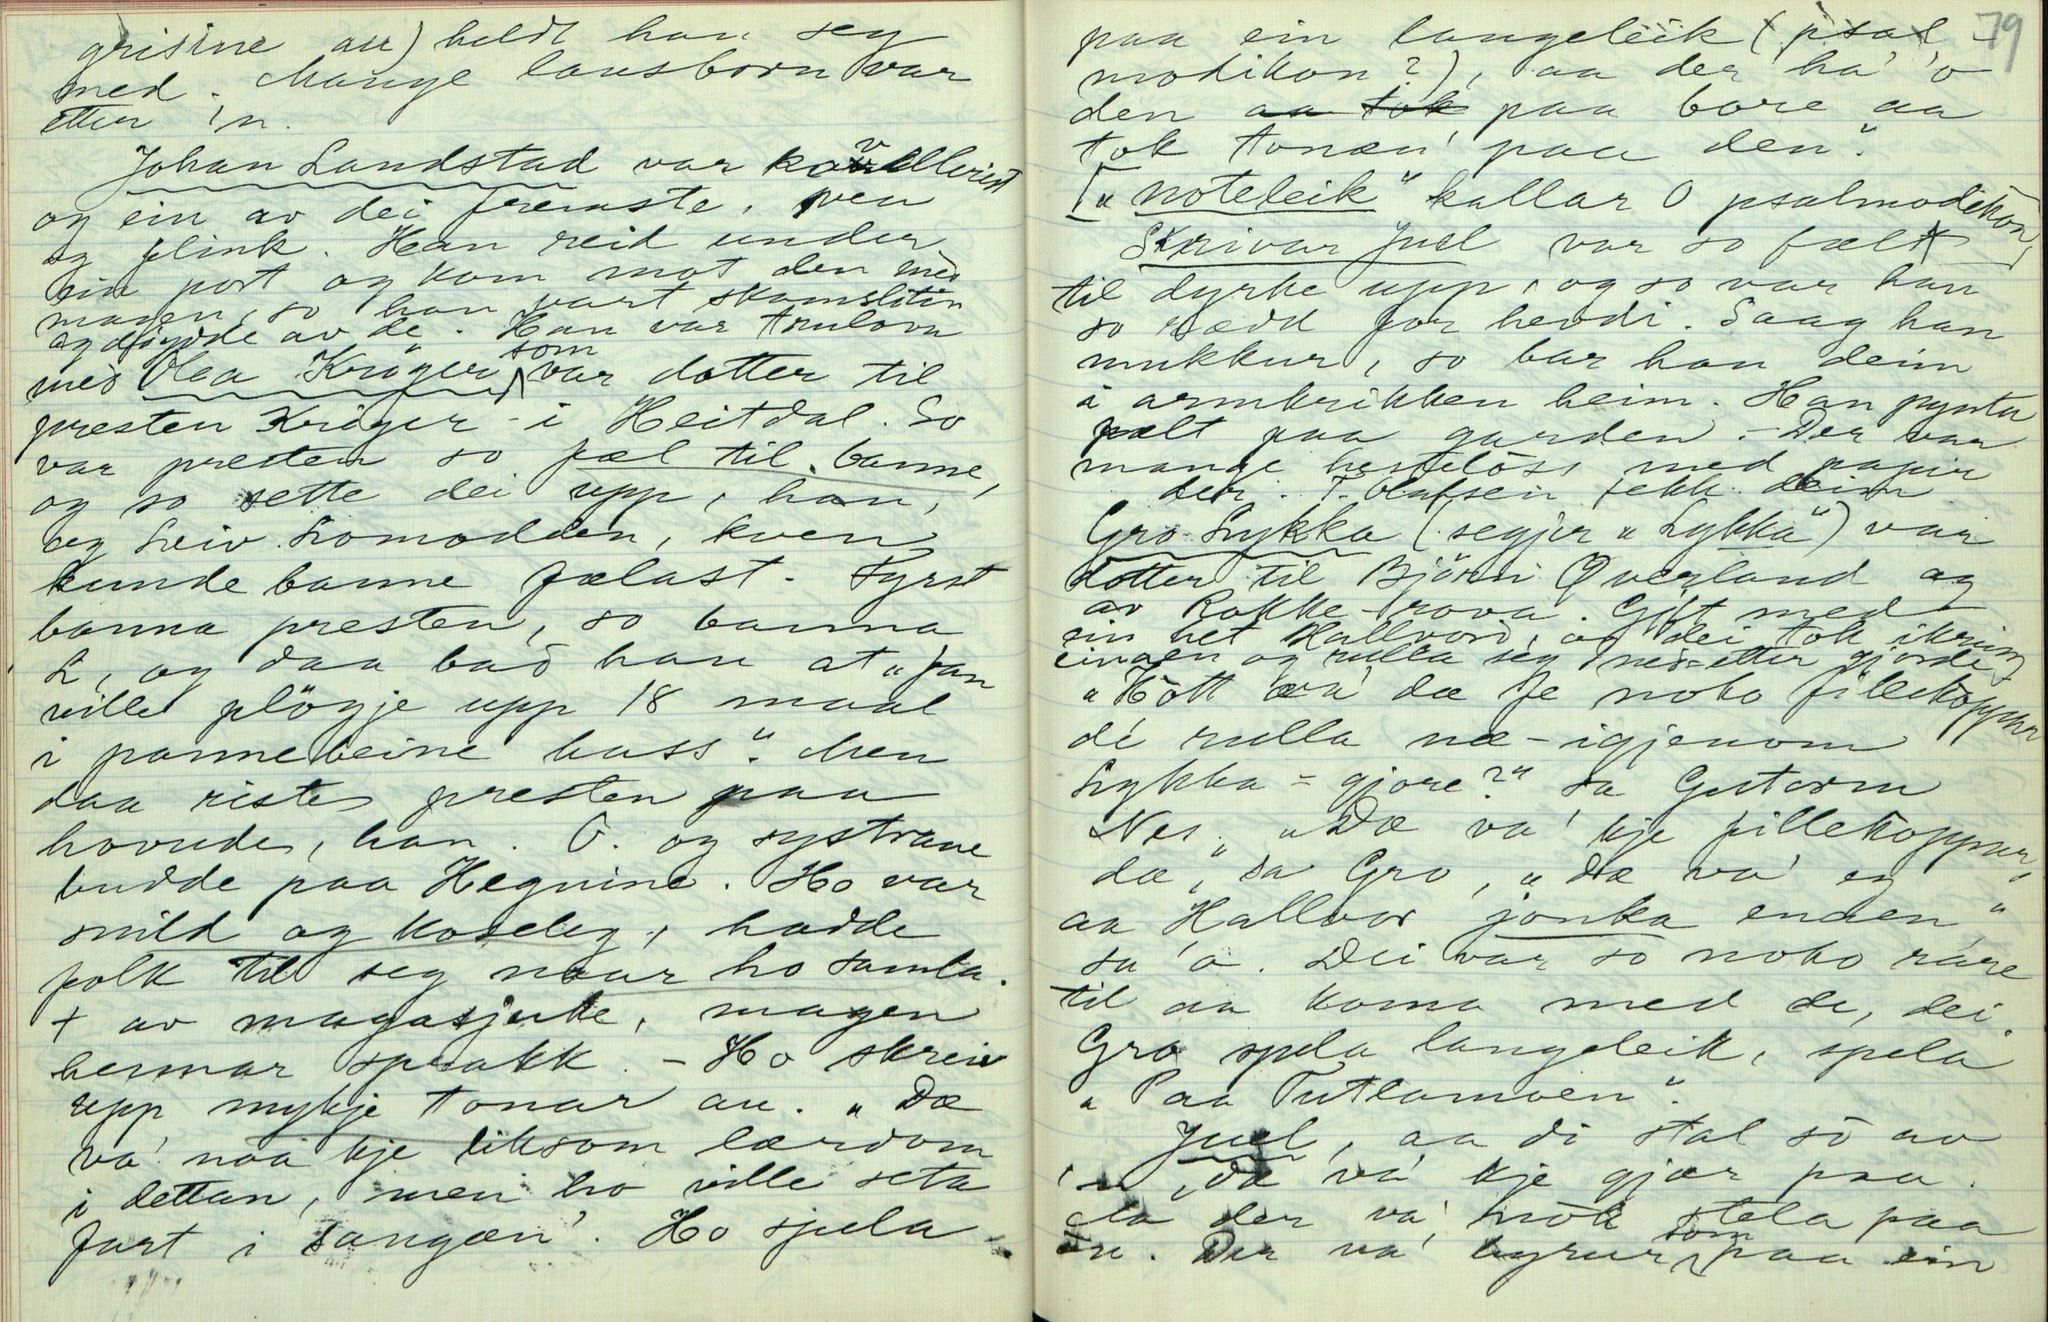 grisine au) heldt han seg
med. Mange lausborn var
etter 'n.
Johan Landstad var kavallerist
og ein av dei fremste, ven
og flink. Han reid under
ein port og kom mot den med
magen, so han vart skamslitin
og döydde av de. Han var trulova
med Olea Kröger som var dotter til
presten Kröger i Heitdal. So
var presten so fæl til banne,
og so sette dei upp, han,
og Leiv Lomodden, kven
kunde banne fælast. Fyrst
banna presten, so banna
L, og daa bad han at "fan
ville plögje upp 18 maal
i pannebeine hass". Men
daa riste presten paa
hovude, han. O. og systrane
budde paa Hegnine. Ho var
snild og koseleg, hadde
folk til seg naar ho samla.
+ av magasjuke, magen
hennar sprakk. – Ho skreiv
upp mykje tonar au. "Dæ
va' naa kje liksom lærdom
i dettan, men ho ville seta
fart i sangæn'. Ho spela
79
paa ein langeleik (psal-
modikon?), aa der ha' 'o
den aa tok paa bore aa
tok tonæn' paa den".
["noteleik" kallar O psalmodikon]
Skrivar Juel var so fælt
til dyrke upp, og so var han
so rædd for hevdi. Saag han
mukkur, so bar han deim
i armkrikken heim. Han pynta
fælt paa garden. – Der var
mange hestelöss med papir
der. T. Olafsen fekk deim.
Gro Lykka (segjer "Lykkâ") var
dotter til Björn Qverland og
av Rokke-rova. Gift med
ein het Hallvord, og dei tok ikring
einannen og rulla seg ned-etter gjorde
"Hött va' dæ fe noko fillekoppar
di rulla næ-igjenom
Lykka-gjore?" sa Gutorm
Nes. "Dæ va' kje fillekoppar,
dæ," sa Gro, "dæ va' eg
aa Hallvor jonka enden,"
sa 'o. Dei var so noko rare
til aa koma med de, dei.
Gro spela langeleik, spela
"Paa Tutlamoen".
Juel, aa di stal so av
'n, dæ va' kje gjær paa.
da der va' nok stela paa
'n. Der va' byrur som paa ein